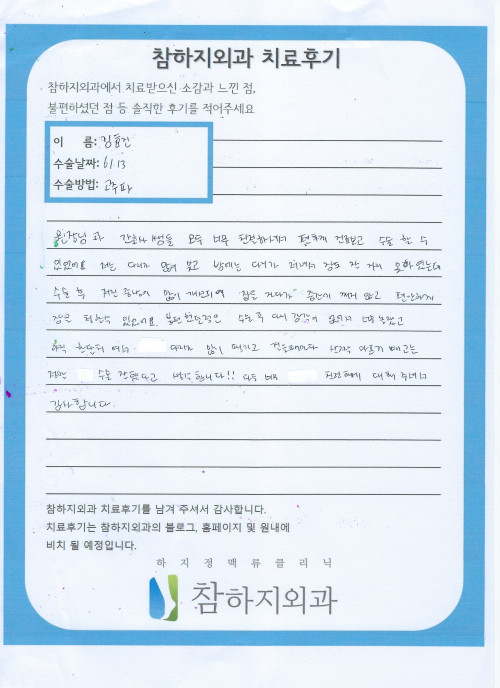 참하지외과 치료후기
참하지외과에서 치료받으신 소감과 느낀 점,
불편하셨던 점 등 솔직한 후기를 적어주세요
이 름:
수술날짜: 6/13
수술방법: 고주파
원장님과 간호사쌤들 모두 너무 친절하셔서 편하게 진료보고 수술 할 수
있었어요 저는 다리가 많이 붓고 밤에는 다리가 저려서 잠도 잘 거의 못잤었는데
수술 후 저린 증상이 많이 개선되어 잠을 자다가 중간에 깨지 않고 편안하게
잠을 취할수 있었어요.
수술 후
아직 한달뒤 여서 다리가 많이 땡기고
수술 잘했다고 생각합니다!! 다들 너무 친절하게 대해 주셔서
감사합니다.
참하지외과 치료후기를 남겨 주셔서 감사합니다.
치료후기는 참하지외과의 블로그, 홈페이지 및 원내에
비치 될 예정입니다.
하지정맥류클리닉
참하지외과